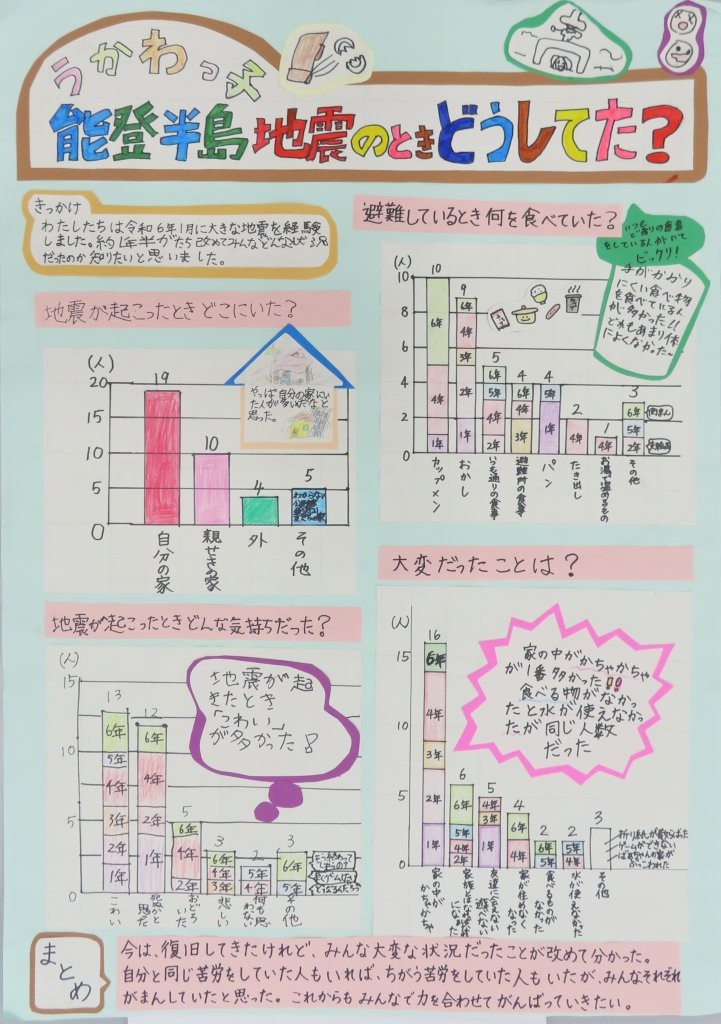 うかわっ子
能登半島地震のときどうしてた？
きっかけ
わたしたちは令和6年1月に大きな地震を経験
しました。約1年半がたち改めてみんなどんな状況
だったのか知りたいと思いました。
地震が起こったときどこにいた？
(人)
20
15
10
5
0
19
10
4
5
自分の家
親せきの家
外
その他
やっぱ自分の家にい
た人が多いだなと
思った。
避難しているとき何を食べていた？
(人)
10
8
6
4
2
0
10
6年
4年
1年
9
6年
4年
3年
2年
1年
5
6年
5年
4年
2年
4
6年
4年
3年
4
5年
1年
2
4年
1
4年
3
6年
5年
2年
カップメン
おかし
いつも通りの食事
避難所の食事
パン
たき出し
お湯で温めるもの
その他
いつも
ど通りの食事
をしている人がいて
ビックリ！
手がかかり
にくい食べ物
を食べている人
が多かった！！
どれもあまり体
によくなかった。
地震が起こったときどんな気持ちだった？
(人)
15
10
5
0
13
6年
5年
4年
3年
2年
1年
12
6年
4年
2年
1年
5
6年
4年
2年
3
6年
4年
3年
2
5年
4年
3
6年
5年
こわい
死ぬかと思った
おどろいた
悲しい
何も思わない
その他
地震が起
きたとき
「こわい」
が多かった！
大変だったことは？
(人)
15
10
5
0
16
6年
4年
3年
2年
1年
6
6年
5年
4年
2年
5
4年
3年
1年
4
6年
4年
2
6年
5年
2
5年
4年
3
家の中がかちゃかちゃ
家族とはなればなれになった
友達に会えない遊べない
家が住めなくなった
食べるものがなかった
水が使えなかった
その他
家の中がかちゃかちゃ
が1番多かった！！
食べる物がなかっ
たと水が使えなかっ
たが同じ人数
だった
まとめ
今は、復旧してきたけれど、みんな大変な状況だったことが改めて分かった。
自分と同じ苦労をしていた人もいれば、ちがう苦労をしていた人もいたが、みんなそれぞれ
がまんしていたと思った。これからもみんなで力を合わせてがんばっていきたい。